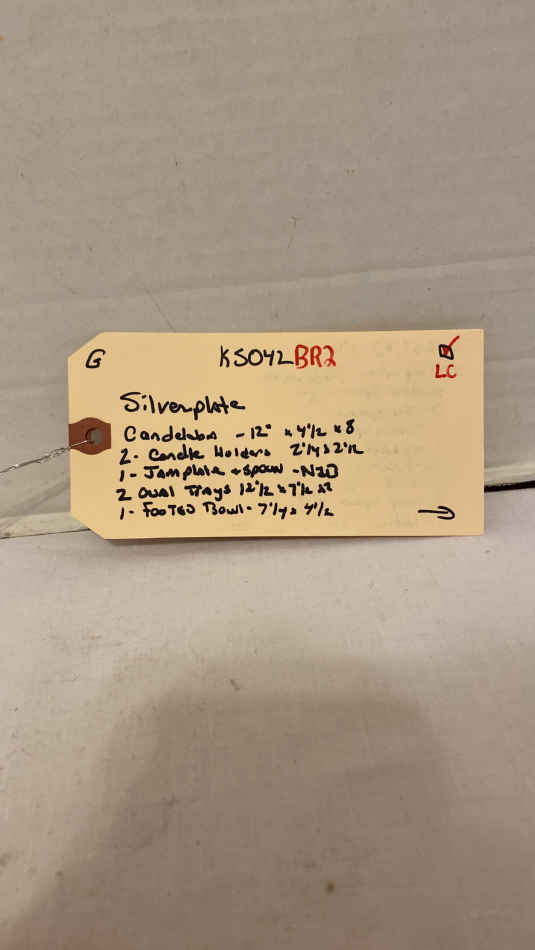 G KS042BR2
LC
Silverplate
Candelabra - 12" x 4 1/2 x 8
2 - Candle Holders 2 1/4 x 2 1/2
1 - Jam plate + spoon -
2 Oval Trays 12 1/2 x 7 1/2 x 2
1 - Footed Bowl - 7 1/4 x 4 1/2 →